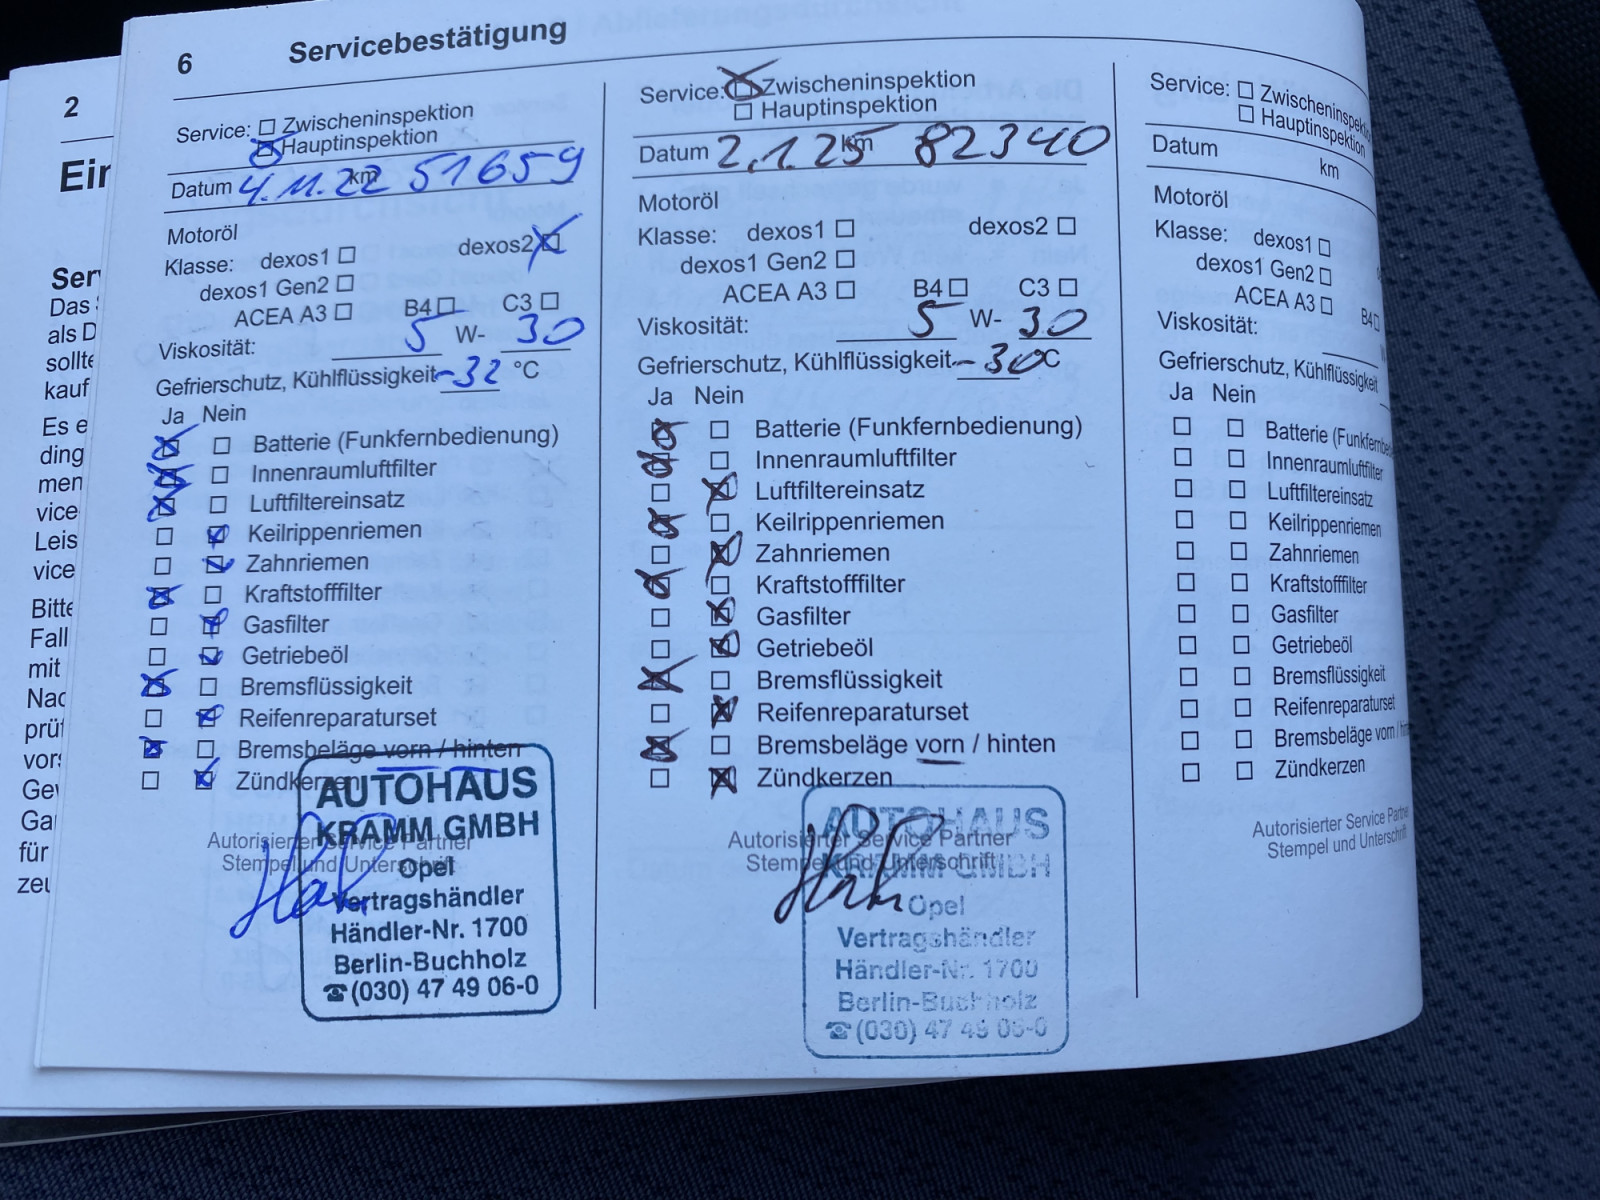 2
Ein
Serv
Das
als D
sollte
kauf
Es e
ding
men
vice
Leis
vice
Bitte
Fall
mit
Nac
prüf
vors
Gew
Gar
für
zeu
6 Servicebestätigung
Service: Zwischeninspektion
Hauptinspektion
Datum 4.11.22 km 51659
Motoröl
Klasse: dexos1 dexos2
dexos1 Gen2
ACEA A3 B4 C3
Viskosität: 5 W- 30
Gefrierschutz, Kühlflüssigkeit -32 °C
Ja Nein
Batterie (Funkfernbedienung)
Innenraumluftfilter
Luftfiltereinsatz
Keilrippenriemen
Zahnriemen
Kraftstofffilter
Gasfilter
Getriebeöl
Bremsflüssigkeit
Reifenreparaturset
Bremsbeläge vorn / hinten
Zündkerzen
Autorisierter Service Partner
Stempel und Unterschrift
AUTOHAUS
KRAMM GMBH
Opel
Vertragshändler
Händler-Nr. 1700
Berlin-Buchholz
☎ (030) 47 49 06-0
Service: Zwischeninspektion
Hauptinspektion
Datum 2.1.25 km 82340
Motoröl
Klasse: dexos1 dexos2
dexos1 Gen2
ACEA A3 B4 C3
Viskosität: 5 W- 30
Gefrierschutz, Kühlflüssigkeit -30 °C
Ja Nein
Batterie (Funkfernbedienung)
Innenraumluftfilter
Luftfiltereinsatz
Keilrippenriemen
Zahnriemen
Kraftstofffilter
Gasfilter
Getriebeöl
Bremsflüssigkeit
Reifenreparaturset
Bremsbeläge vorn / hinten
Zündkerzen
Autorisierter Service Partner
Stempel und Unterschrift
AUTOHAUS
KRAMM GMBH
Opel
Vertragshändler
Händler-Nr. 1700
Berlin-Buchholz
☎ (030) 47 49 06-0
Service: Zwischeninspektion
Hauptinspektion
Datum km
Motoröl
Klasse: dexos1
dexos1 Gen2
ACEA A3 B4
Viskosität:
Gefrierschutz, Kühlflüssigkeit
Ja Nein
Batterie (Funkfernbe
Innenraumluftfilter
Luftfiltereinsatz
Keilrippenriemen
Zahnriemen
Kraftstofffilter
Gasfilter
Getriebeöl
Bremsflüssigkeit
Reifenreparaturset
Bremsbeläge vorn / hin
Zündkerzen
Autorisierter Service Partner
Stempel und Unterschrift